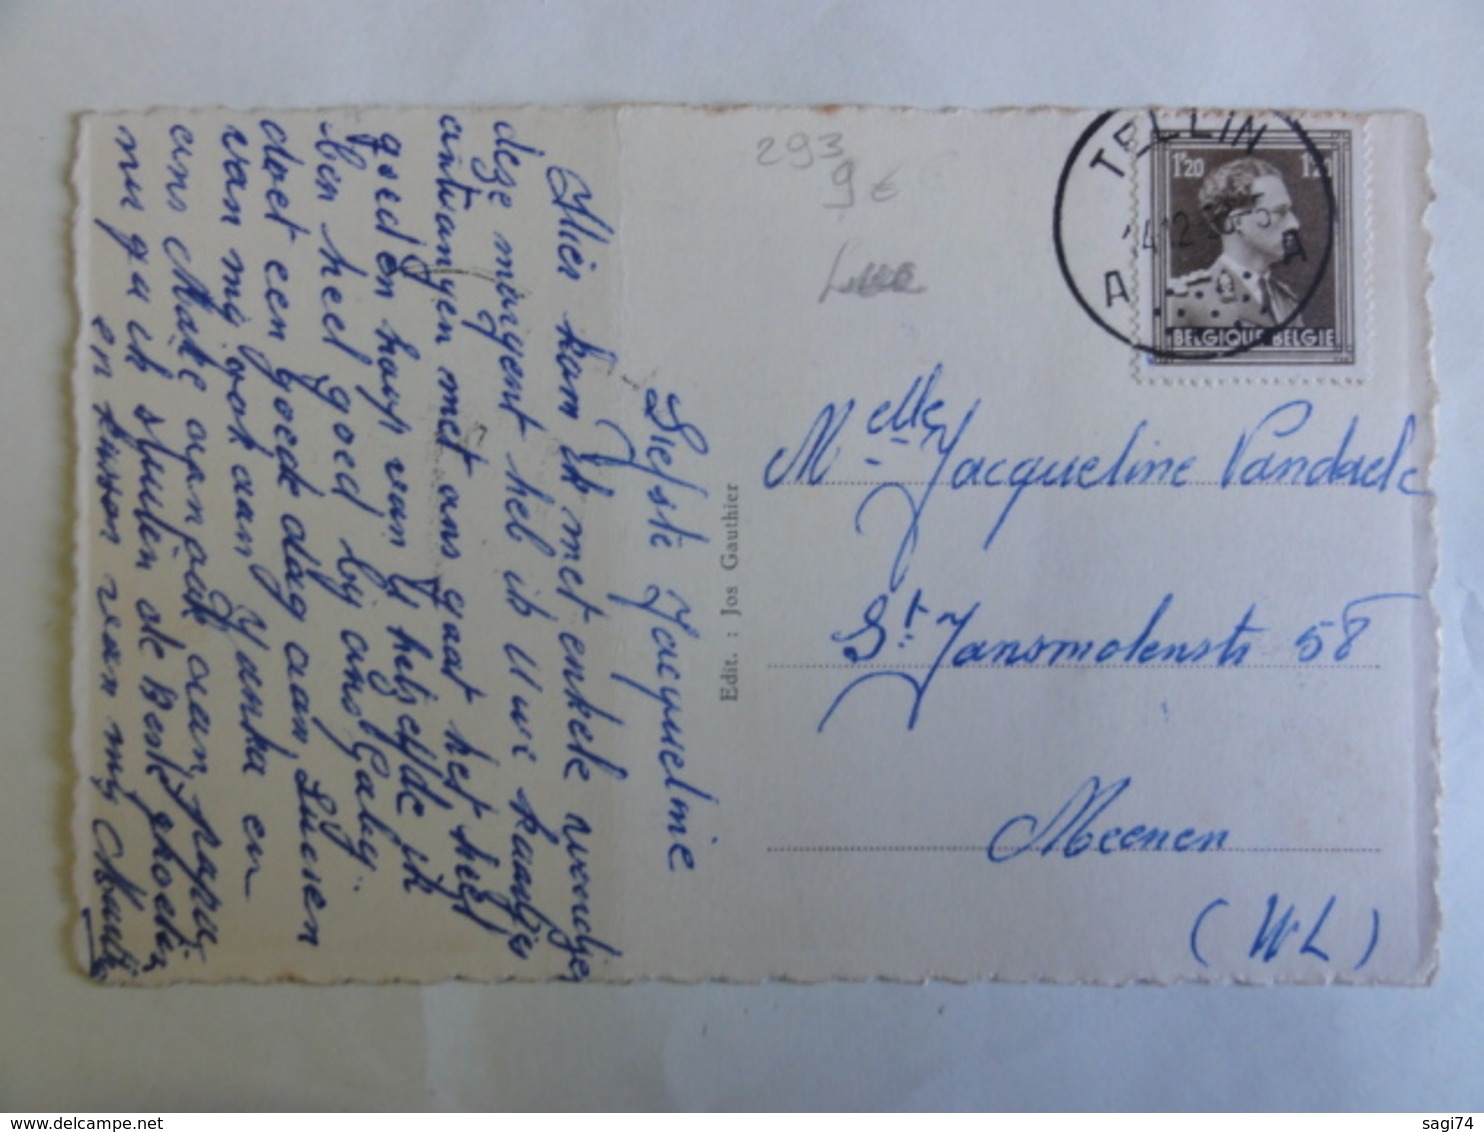 Liefste Jacqueline
Hier kom ik met enkele woordjes
deze morgent heb ik Uwe kaartje
ontvangen met ons gaat het heel
goed en hoop van U hetzelfde ik
ben heel goed bij ons Gaby.
doet een goede dag aan Lusien
van mij ook aan Yanka en
ons Make aan pak aan papa
nu ga ik sluiten de Beste groetin
en kussen van mij
Edit. : Jos Gauthier
293
9 €
TELLIN
A A
1F20
BELGIQUE BELGIE
Melle Jacqueline Vandaele
St Jansmolenstr 58
Meenen
(W L)
delcampe.net
sagi74